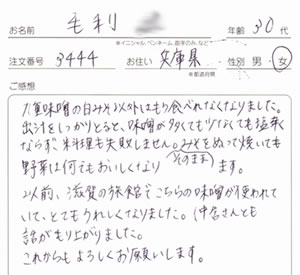 お名前 毛利 年齢 30代
※イニシャル、ペンネーム、苗字のみ、など
注文番号 3444 お住い 兵庫県 性別 男・女
※都道府県
ご感想
重味噌の白みそ以外はもう食べれなくなりました。
出汁をしっかりとると、味噌が多くても少なくても塩辛く
ならず、お料理も失敗しません。みそをぬって焼いても
野菜は何でもおいしくなり(そのまま)ます。
以前、滋賀の旅館でこちらの味噌が使われて
いて、とてもうれしくなりました。(仲居さんとも
話がもり上がりました。
これからもよろしくお願いします。